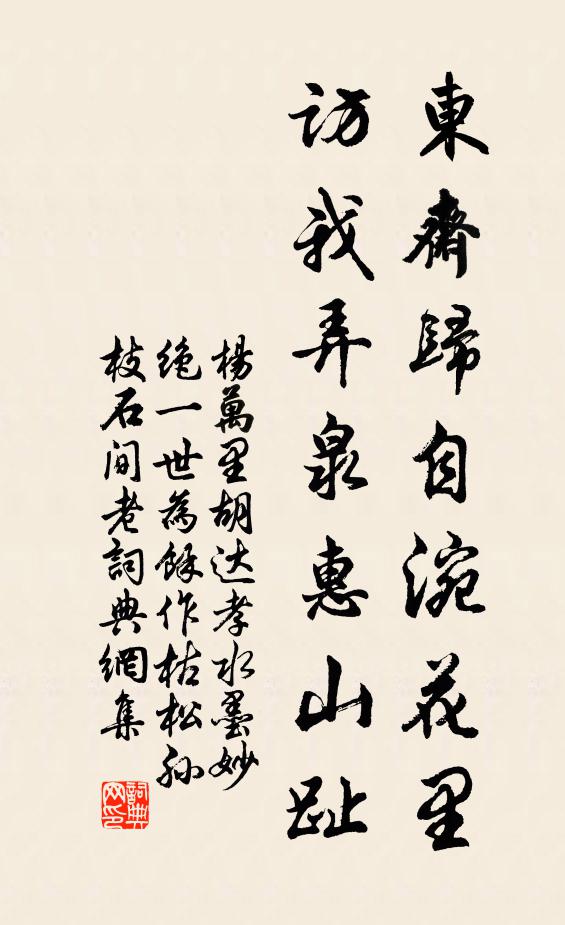 東齋歸自浣花里
訪我弄泉惠山趾
楊萬里胡达孝水墨妙
絶一世為餘作枯松孫
枝石間老詞典網集
詞典网印